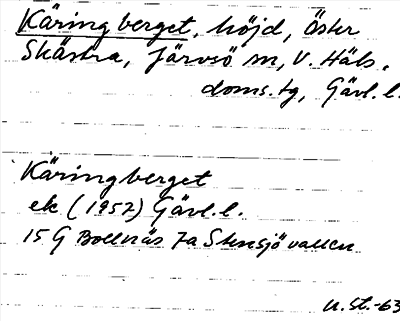 Käringberget, höjd, Öster
Skästra, Järvsö sn, V. Häls.
doms.tg, Gävl.l.
Käringberget
ek (1957) Gävl.l.
15 G Bollnäs 7a Stensjövallen
U.St.-63